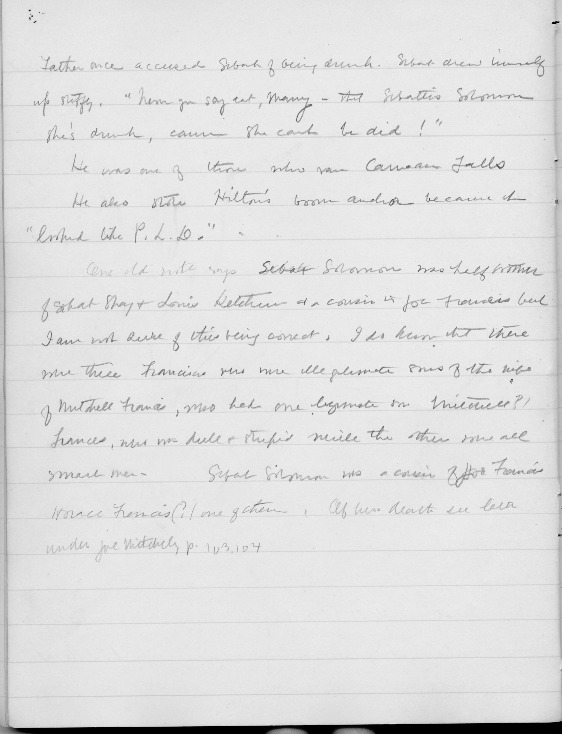 Father once accused Sebat of being drunk. Sebat drew himself
up stiffly. "Now you say eat, Manny - Sebattis Solomon
She's drunk, cause she can't be did!"
He was one of those who ran Canaan Falls
He also stole Hilton's boom anchor because it
"looked like P.L.D."
One old note says Sebat Solomon was half brother
of Sebat Shay & Louis Ketchum & a cousin to Joe Francis but
I am not sure of this being correct. I do know that there
were three Francises who were illegitimate sons of the wife
of Mitchell Francis, who had one legitimate son Mitchell(?)
Francis, who was dull & stupid while the others were all
smart men - Sebat Solomon was a cousin of Joe Francis
Horace Francis(?) one of them. Of his death see later
under Joe Mitchell, p. 103, 104